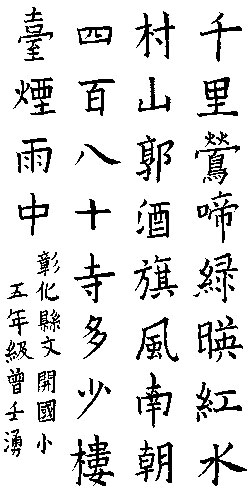 千里鶯啼綠暎紅水
村山郭酒旗風南朝
四百八十寺多少樓
臺煙雨中
彰化縣文開國小
五年級曾壬湧